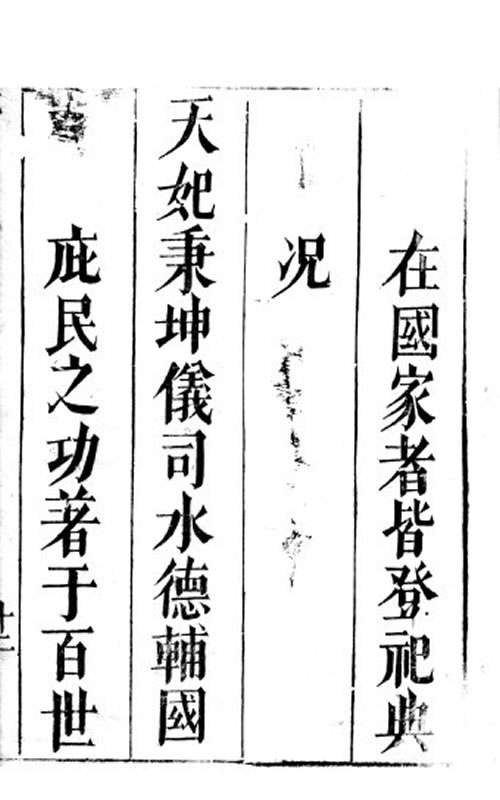 在國家者皆登祀典
况
天妃秉坤儀司水德輔國
庇民之功著于百世
十二